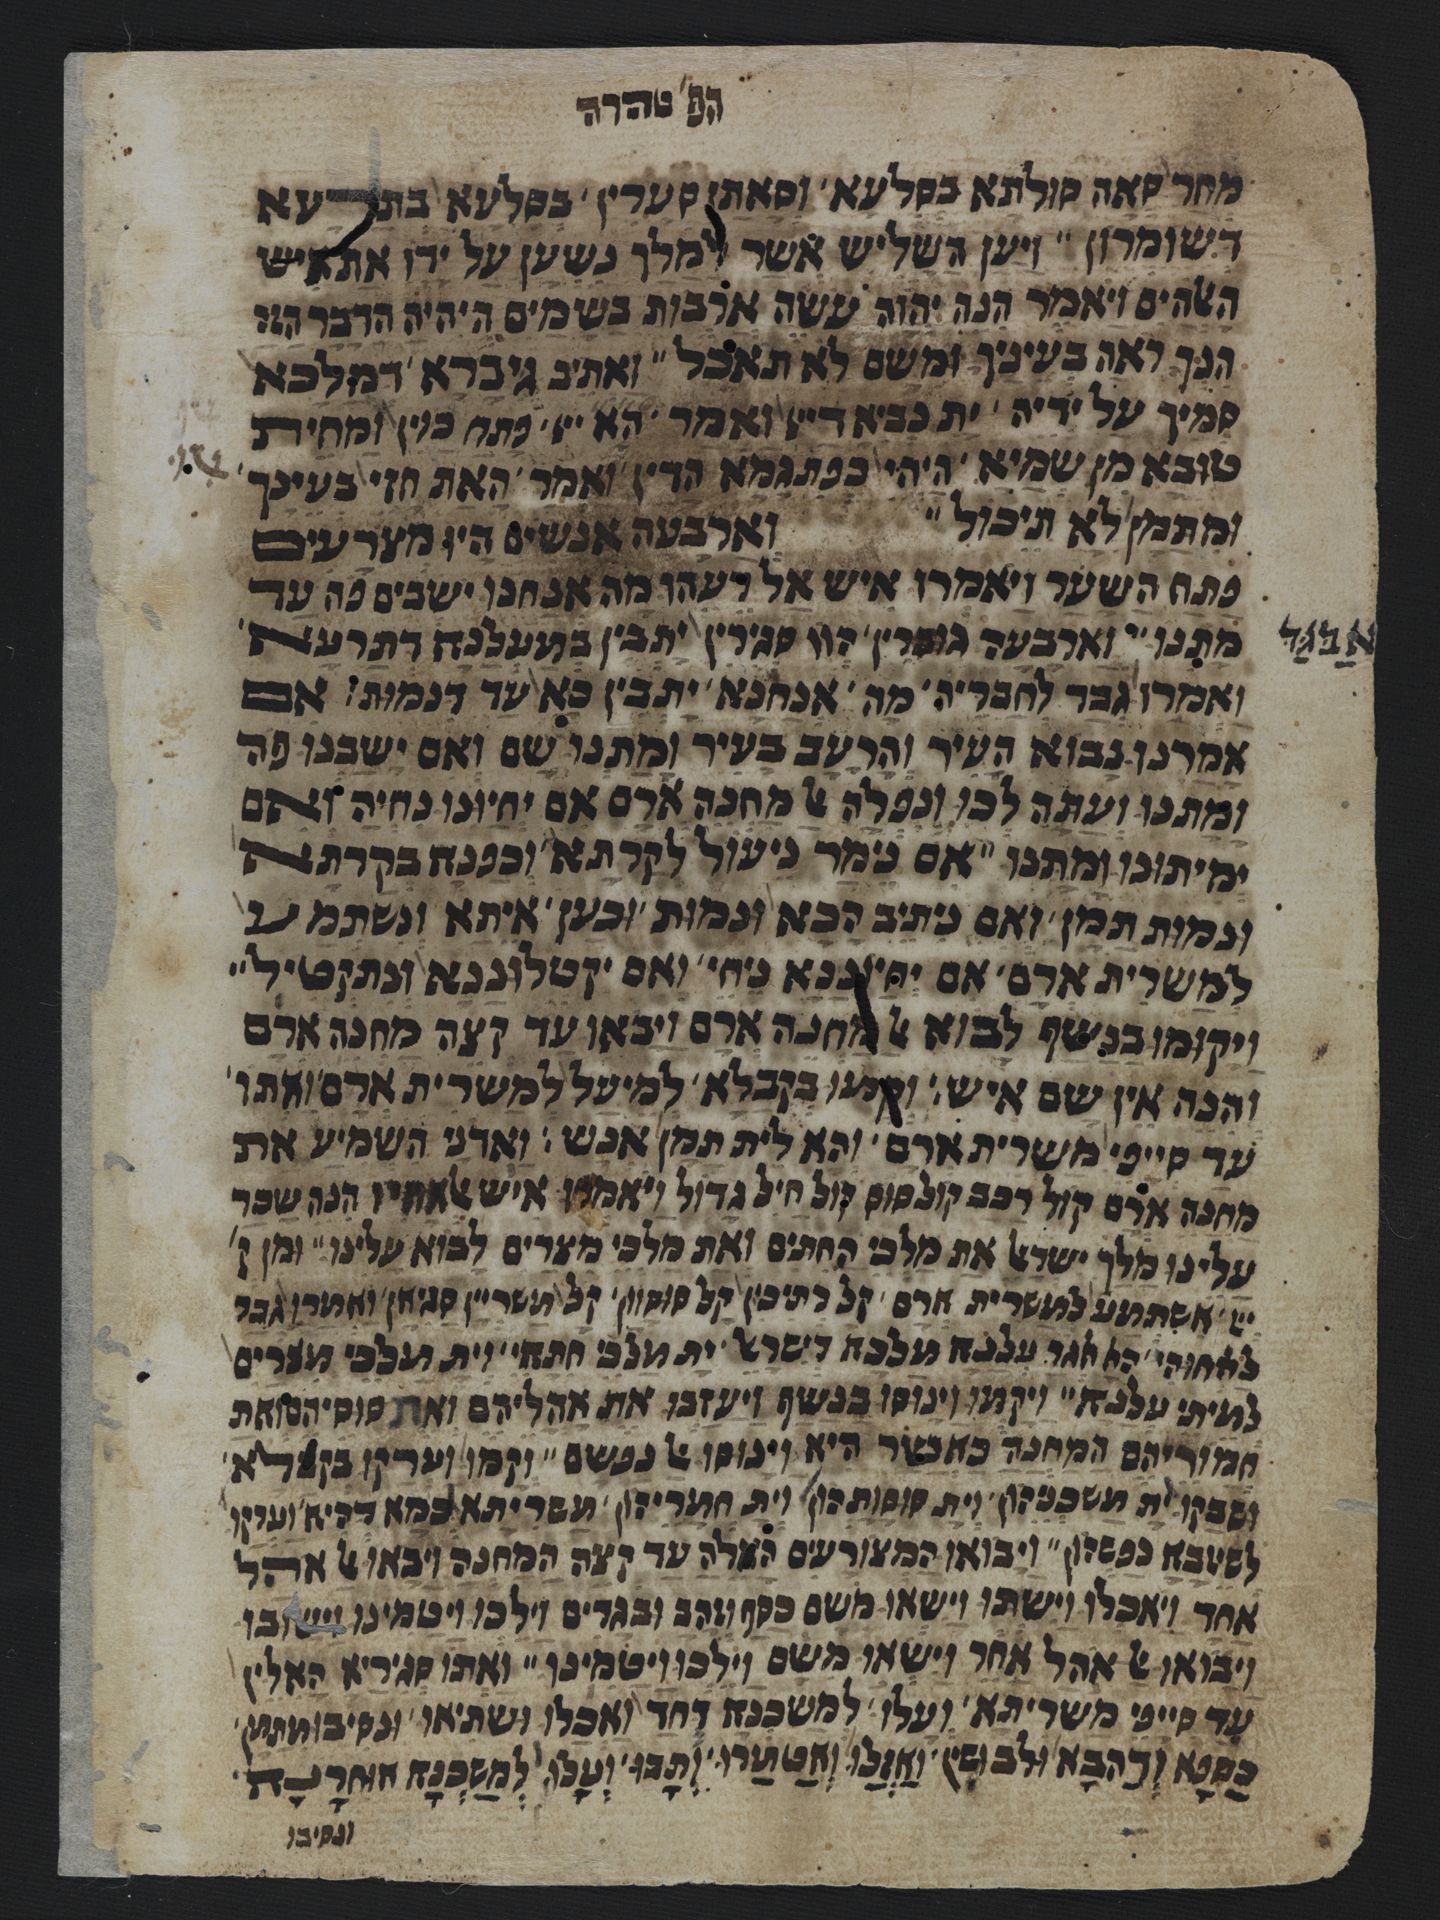 הפ' טהרה
מחר סאה סולתא בסלעא' וסאתן סערין' בסלעא בתרעא
דשומרון" ויען השליש אשר למלך נשען על ידו את איש
האלהים ויאמר הנה יהוה עשה ארבות בשמים היהיה הדבר הזה
הנך ראה בעיניך ומשם לא תאכל" ואתיב גיברא' דמלכא
סמיך על ידיה' ית נביא דייי ואמר' הא ייי' פתח כוין ומחית
טובא מן שמיא' היהי כפתגמא הדין ואמר' האת חזי בעינך'
ומתמן לא תיכול" וארבעה אנשים היו מצרעים
פתח השער ויאמרו איש אל רעהו מה אנחנו ישבים פה עד
מתנו" וארבעה גוברין' הוו סגירין' יתבין במעלנא דתרעא'
ואמרו גבר לחבריה' מה' אנחנא' יתבין כא עד דנמות: אם
אמרנו נבוא העיר והרעב בעיר ומתנו שם ואם ישבנו פה
ומתנו ועתה לכו ונפלה אל מחנה ארם אם יחיונו נחיה ואם
ימיתונו ומתנו" אם נימר ניעול לקרתא' וכפנא בקרתא
ונמות תמן' ואם ניתיב הכא ונמות' וכען' איתא ונשתמע
למשרית ארם' אם יחיוננא ניחי' ואם יקטלוננא ונתקטיל"
ויקומו בנשף לבוא אל מחנה ארם ויבאו עד קצה מחנה ארם
והנה אין שם איש: וקמו בקבלא' למיעל למשרית ארם ואתו'
עד סייפי משרית ארם' והא לית תמן אנש: ואדני השמיע את
מחנה ארם קול רכב קול סוס קול חיל גדול ויאמרו איש אל אחיו הנה שכר
עלינו מלך ישראל את מלכי החתים ואת מלכי מצרים לבוא עלינו" ומן ק'
ייי' אשתמע למשרית ארם' קל רתיכין קל סוסון' קל משריין סגיאן ואמרו גבר
לאחוהי' הא אגר עלנא מלכא דישראל' ית מלכי חתאי' וית מלכי מצרים
למיתי עלנא" ויקמו וינוסו בנשף ויעזבו את אהליהם ואת סוסיהם ואת
חמוריהם המחנה כאשר היא וינוסו אל נפשם" וקמו וערקו בקבלא'
ושבקו ית משכניהון' וית סוסותהון' וית חמריהון' משריתא כמא דהיא' וערקו
לשיזבא נפשהון" ויבואו המצורעים האלה עד קצה המחנה ויבאו אל אהל
אחד ויאכלו וישתו וישאו משם כסף וזהב ובגדים וילכו ויטמינו וישובו
ויבואו אל אהל אחר וישאו משם וילכו ויטמינו" ואתו סגיריא האלין
עד סייפי משריתא' ועלו' למשכנא דחד ואכלו ושתיאו' ונסיבו מתמן'
כַּסְפָּא וְדַהבָּא ולבושין' וַאֲזַלוּ וְאַטְמַרוּ' וְתָבוּ' וְעָלוּ' לְמַשְׁכְּנָא אוחרָנָא'
ונסיבו
אַבגַד